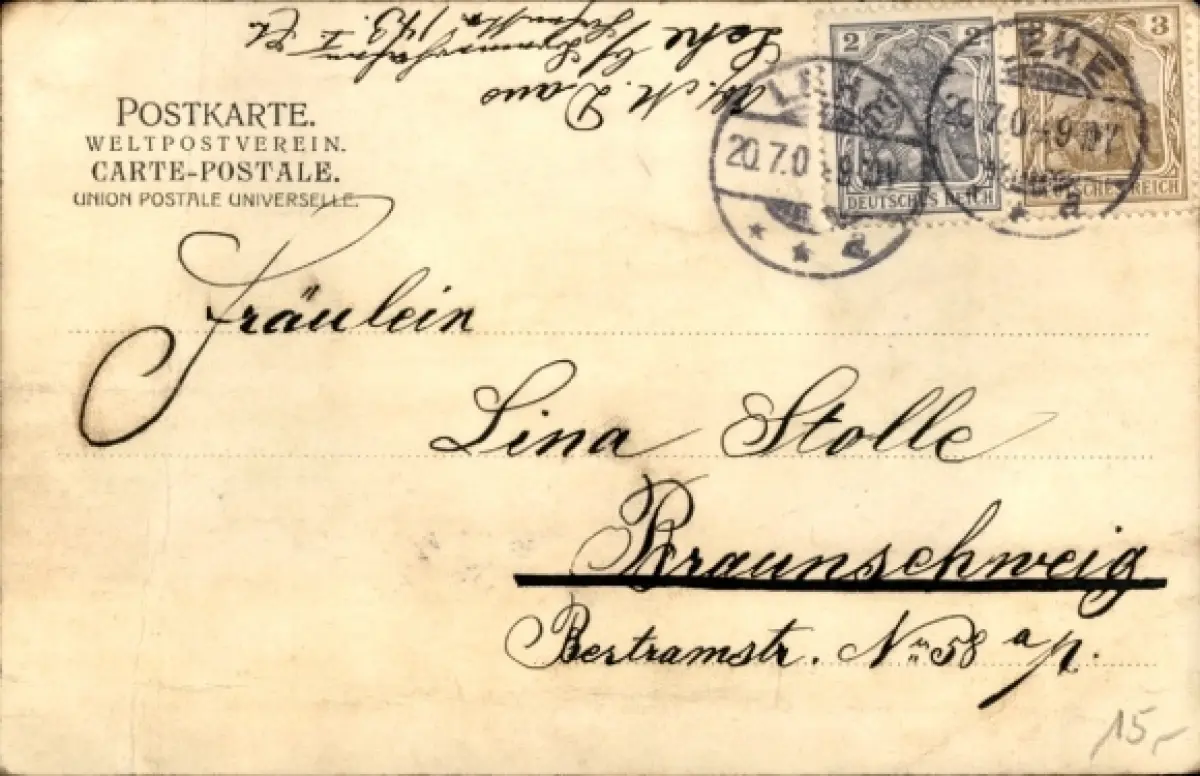 POSTKARTE.
WELTPOSTVEREIN.
CARTE-POSTALE.
UNION POSTALE UNIVERSELLE.
2 2
DEUTSCHES REICH
3
DEUTSCHES REICH
LEHE
20.7.0 4-9
a
LEHE
20.7.04-9
a
Lehe
Fräulein
Lina Stolle
Braunschweig
Bertramstr. No 58 a p.
15,-